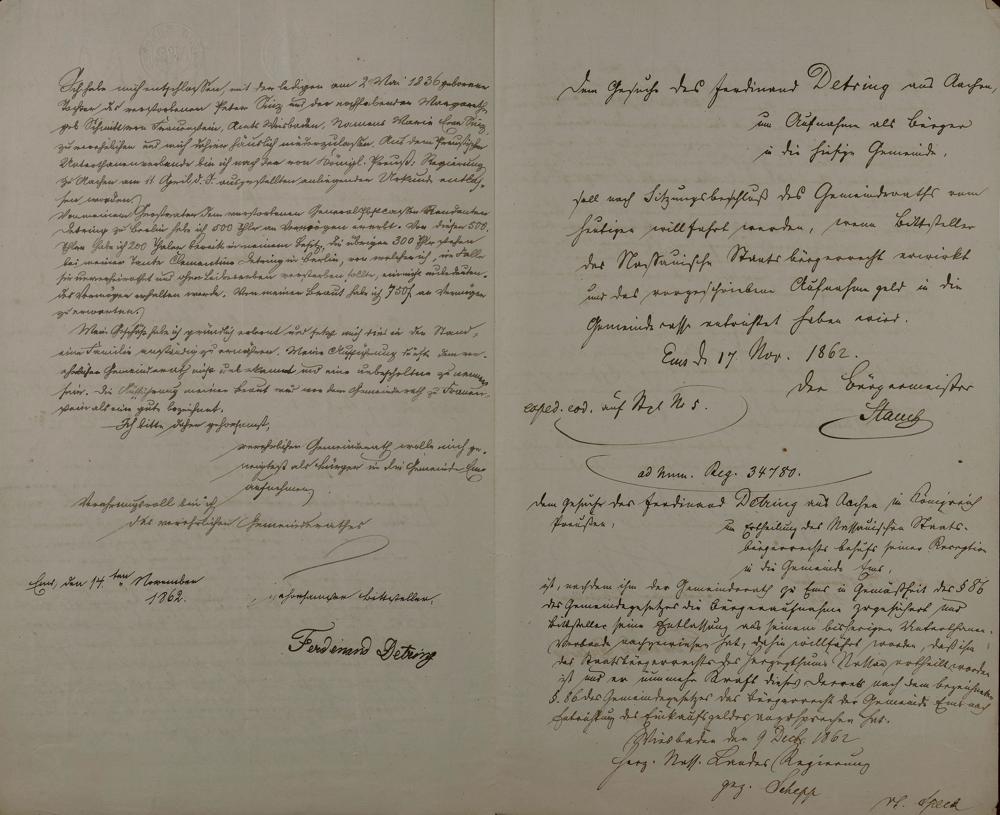 Ich habe mich entschlossen, mit der ledigen am 2. Mai 1836 geborenen
Tochter des verstorbenen Peter Sinz und der noch lebenden Margareth,
geb. Schmitt von Frauenstein, Amts Wiesbaden, Namens Marie Eva Sinz,
zu verehelichen und mich dahier häuslich niederzulassen. Aus dem Preußischen
Unterthanenverbande bin ich nach der von Königl. Preuß. Regierung
zu Aachen am 11 April d. J. ausgestellten anliegenden Urkunde entlas-
sen worden.
Von meinem Großvater dem verstorbenen General
Detring zu Berlin habe ich 500 Thlr an Vermögen ererbt. Von diesen 500
Thlrn habe ich 200 Thaler bereits in meinem Besitz, die übrigen 300 Thlr stehen
bei meiner Tante Clementine Detring in Berlin, von welcher ich, im Falle
sie unverheirathet und ohne Leibeserben versterben sollte, ein nicht unbedeuten-
des Vermögen erhalten werde. Von meiner Braut habe ich 750 f. an Vermögen
zu erwarten.
Mein Geschäft habe ich gründlich erlernt und setzt mich dies in den Stand,
eine Familie anständig zu ernähren. Meine Aufführung dürfte dem ver-
ehrlichen Gemeinderath nicht unbekannt und eine unbescholtene zu nennen
sein. Die Aufführung meiner Braut wird von dem Gemeinderath zu Frauen-
stein als eine gute bezeichnet.
Ich bitte daher gehorsamst,
verehrlicher Gemeinderath wolle mich ge-
neigtest als Bürger in die Gemeinde Ems
aufnehmen.
Verehrungsvoll bin ich
des verehrlichen Gemeinderathes
Ems, den 14.ten November
1862.
gehorsamster Bittsteller,
Ferdinand Detring
Dem Gesuche des Ferdinand Detring aus Aachen,
um Aufnahme als Bürger
in die hiesige Gemeinde,
soll nach Sitzungsbeschluß des Gemeinderaths vom
heutigen willfahrt werden, wenn Bittsteller
das Nassauische Staatsbürgerrecht erwirkt
und das vorgeschriebene Aufnahmegeld in die
Gemeindecasse entrichtet haben wird.
Ems d. 17 Nov. 1862.
Der Bürgermeister
Stauch
eoped. eod. auf Stpl No 5.
ad Num. Reg. 34780.
Dem Gesuche des Ferdinand Detring aus Aachen im Königreich
Preußen,
um Ertheilung des Nassauischen Staats-
bürgerrechts behufs seiner Reception
in die Gemeinde Ems,
ist, nachdem ihm der Gemeinderath zu Ems in Gemäßheit des § 86
des Gemeindegesetzes die Bürgeraufnahme zugesichert und
Bittsteller seine Entlassung aus seinem bisherigen Unterthanen-
Verbande nachgewiesen hat, dahin willfahrt worden, daß ihm
das Staatsbürgerrecht des Herzogthums Nassau ertheilt worden
ist und er nunmehr Kraft dieses Decrets nach dem bezeichneten
§. 86 des Gemeindegesetzes das Bürgerrecht der Gemeinde Ems nach
Entrichtung des Einkaufsgeldes anzusprechen hat.
Wiesbaden den 9 Decbr. 1862
Herz. Nass. Landes Regierung
gez. Schepp
vt. Speck